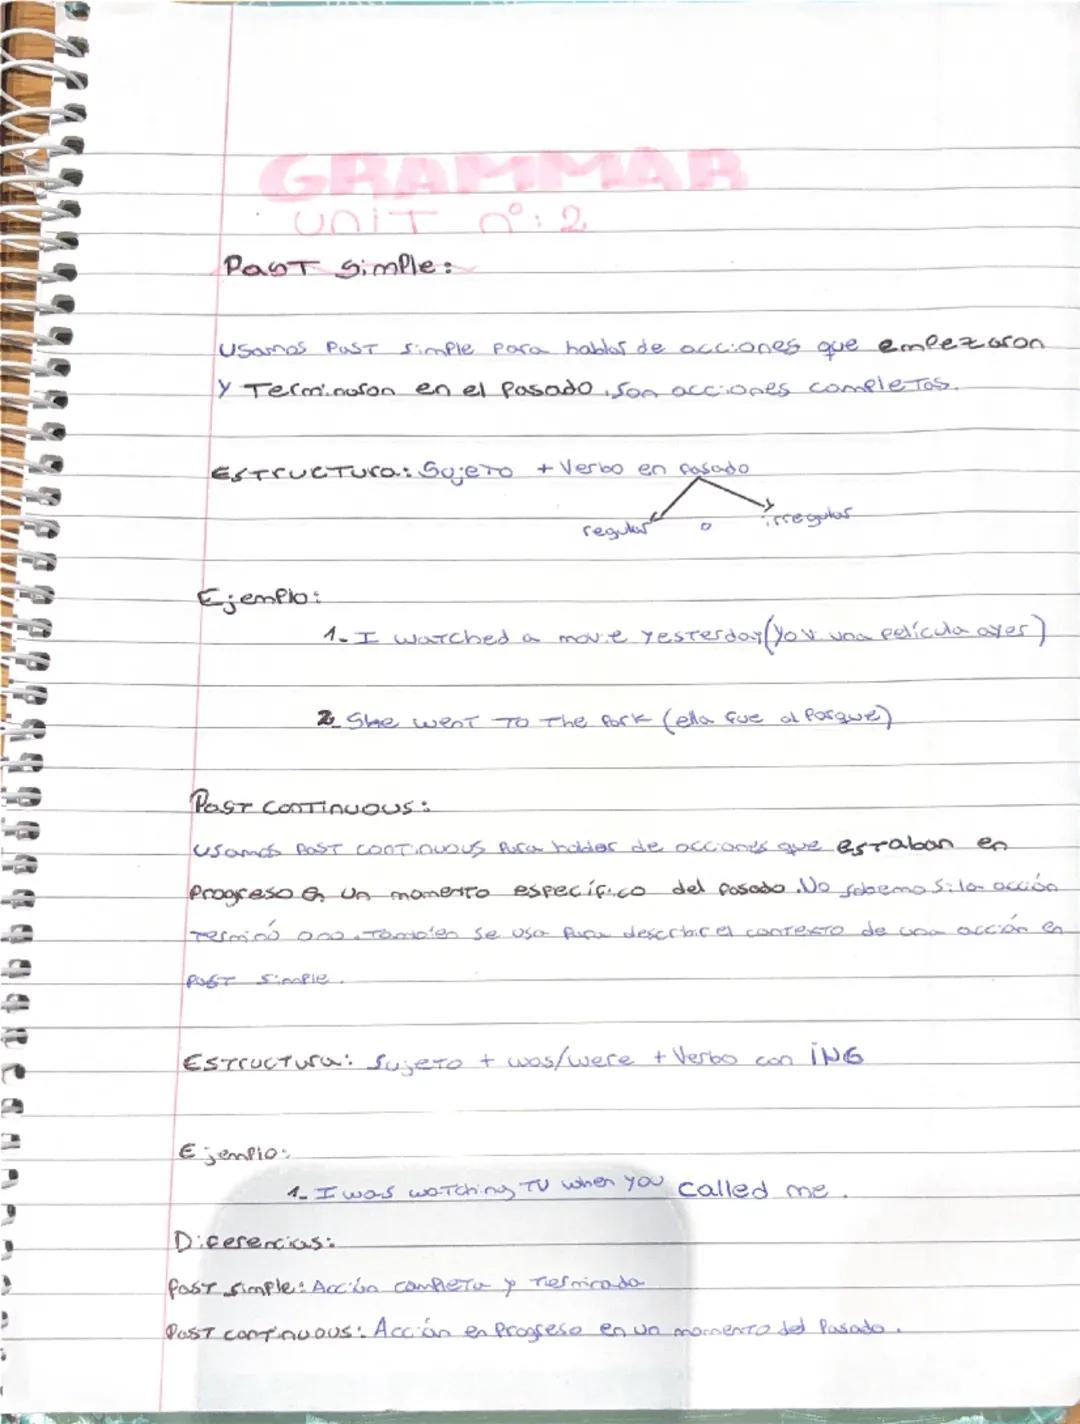 GRAMMAR
UNIT nº: 2
Past Simple:
Usamos Past simple para hablar de acciones que empezaron
y Terminaron en el Pasado, son acciones completas.
Estructura: Sujeto + Verbo en pasado
regular o irregular
Ejemplo:
1- I watched a movie yesterday (Yo v una película ayer)
2- She went to the park (ella fue al Parque)
Past continuous:
Usamos Past continuous Para hablar de acciones que estaban en
Progreso en un momento específico del pasado. No sabemo si la acción
terminó o no. También se usa Para describir el contexto de una acción en
past simple.
Estructura: Sujeto + was/were + Verbo con ING
Ejemplo:
1- I was watching TV when you called me.
Diferencias:
Past simple: Acción completa y Terminada
Past continuous: Acción en Progreso en un momento del Pasado.